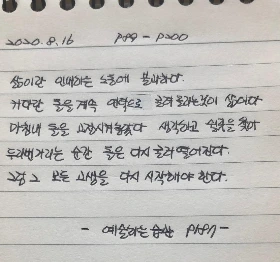 2020. 8. 16    P199 - P200
삶이란 인내하는 노동에 불과하다.
커다란 돌을 계속 언덕으로 굴려 올라는것이 삶이다
마침내 돌을 고정시켜놓았다 생각하고 쉴곳을 찾아
두리번거리는 순간 돌은 다시 굴러 떨어진다.
그럼 그 모든 고생을 다시 시작해야 한다.
- 예술하는 습관 P197 -